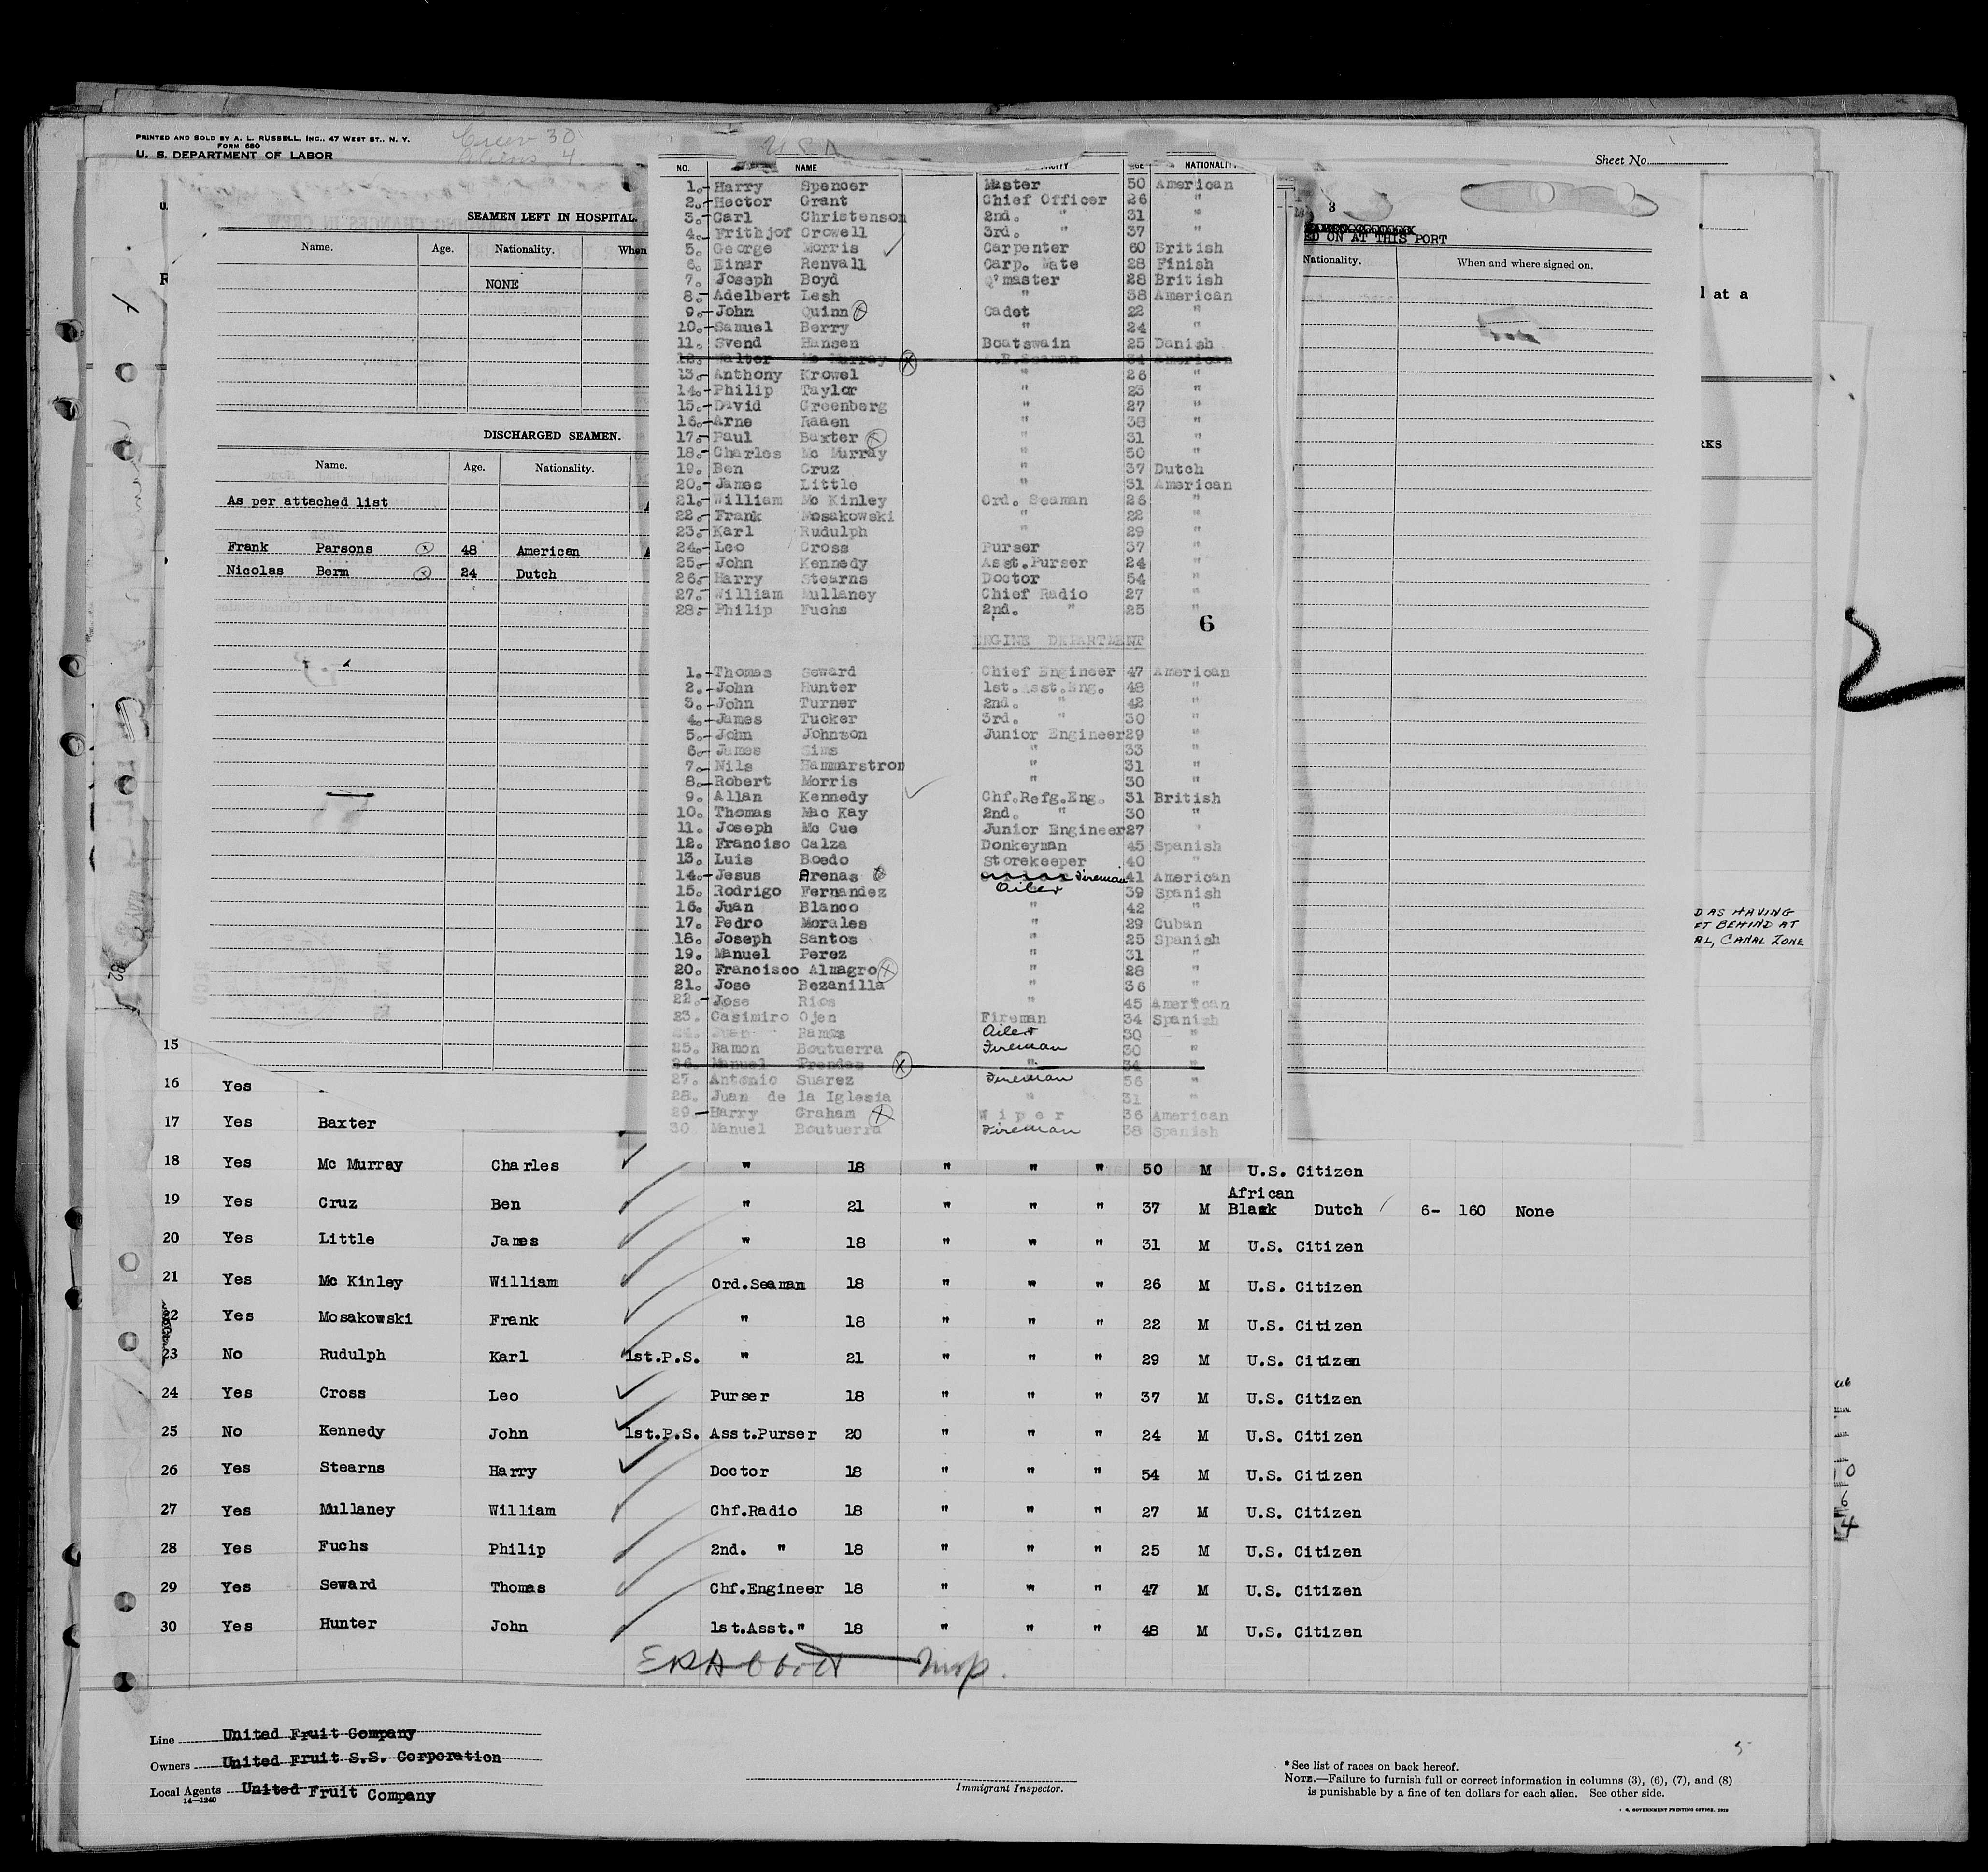 PRINTED AND SOLD BY A. L. RUSSELL, INC., 47 WEST ST., N. Y.
FORM 680
U. S. DEPARTMENT OF LABOR
Crew 30
Aliens 4
Sheet No.
SEAMEN LEFT IN HOSPITAL.
Name. Age. Nationality. When
NONE
DISCHARGED SEAMEN.
Name. Age. Nationality.
As per attached list
Frank Parsons 48 American
Nicolas Berm 24 Dutch
U S A
NO. NAME NATIONALITY
1. Harry Spencer Master 50 American
2. Hector Grant Chief Officer 26 "
3. Carl Christenson 2nd. " 31 "
4. Frithjof Crowell 3rd. " 37 "
5. George Morris Carpenter 60 British
6. Einar Renvall Carp. Mate 28 Finish
7. Joseph Boyd Q'master 28 British
8. Adelbert Lesh " 38 American
9. John Quinn Cadet 22 "
10. Samuel Berry " 24 "
11. Svend Hansen Boatswain 25 Danish
12. Walter Mc Murray A.B.Seaman 34 American
13. Anthony Krowel " 26 "
14. Philip Taylor " 23 "
15. David Greenberg " 27 "
16. Arne Raaen " 38 "
17. Paul Baxter " 31 "
18. Charles Mc Murray " 50 "
19. Ben Cruz " 37 Dutch
20. James Little " 31 American
21. William Mc Kinley Ord. Seaman 26 "
22. Frank Mosakowski " 22 "
23. Karl Rudulph " 29 "
24. Leo Cross Purser 37 "
25. John Kennedy Asst.Purser 24 "
26. Harry Stearns Doctor 54 "
27. William Mullaney Chief Radio 27 "
28. Philip Fuchs 2nd. " 25 "
6
ENGINE DEPARTMENT
1. Thomas Seward Chief Engineer 47 American
2. John Hunter 1st.Asst.Eng. 48 "
3. John Turner 2nd. " 42 "
4. James Tucker 3rd. " 30 "
5. John Johnson Junior Engineer 29 "
6. James Sims " 33 "
7. Nils Hammarstrom " 31 "
8. Robert Morris " 30 "
9. Allan Kennedy Chf.Refg.Eng. 31 British
10. Thomas Mac Kay 2nd. " 30 "
11. Joseph Mc Cue Junior Engineer 27 "
12. Franciso Calza Donkeyman 45 Spanish
13. Luis Boedo Storekeeper 40 "
14. Jesus Arenas Fireman 41 American
15. Rodrigo Fernandez Oiler 39 Spanish
16. Juan Blanco " 42 "
17. Pedro Morales " 29 Cuban
18. Joseph Santos " 25 Spanish
19. Manuel Perez " 31 "
20. Francisco Almagro " 28 "
21. Jose Bezanilla " 36 "
22. Jose Rios " 45 American
23. Casimiro Ojen Fireman 34 Spanish
24. Juan Ramos Oiler 30 "
25. Ramon Boutuerra Fireman 30 "
26. Manuel Prendes " 34 "
27. Antonio Suarez Fireman 56 "
28. Juan de la Iglesia " 31 "
29. Harry Graham Wiper 36 American
30. Manuel Boutuerra Fireman 38 Spanish
3
ED ON AT THIS PORT
Nationality. When and where signed on.
l at a
RKS
D AS HAVING
FT BEHIND AT
AL, CANAL ZONE
82
15
16 Yes
17 Yes Baxter
18 Yes Mc Murray Charles " 18 " " " 50 M U.S. Citizen
19 Yes Cruz Ben " 21 " " " 37 M African Black Dutch 6- 160 None
20 Yes Little James " 18 " " " 31 M U.S. Citizen
21 Yes Mc Kinley William Ord.Seaman 18 " " " 26 M U.S. Citizen
22 Yes Mosakowski Frank " 18 " " " 22 M U.S. Citizen
23 No Rudulph Karl 1st.P.S. " 21 " " " 29 M U.S. Citizen
24 Yes Cross Leo Purser 18 " " " 37 M U.S. Citizen
25 No Kennedy John 1st.P.S. Asst.Purser 20 " " " 24 M U.S. Citizen
26 Yes Stearns Harry Doctor 18 " " " 54 M U.S. Citizen
27 Yes Mullaney William Chf.Radio 18 " " " 27 M U.S. Citizen
28 Yes Fuchs Philip 2nd. " 18 " " " 25 M U.S. Citizen
29 Yes Seward Thomas Chf.Engineer 18 " " " 47 M U.S. Citizen
30 Yes Hunter John 1st.Asst." 18 " " " 48 M U.S. Citizen
Insp.
Line United Fruit Company
Owners United Fruit S.S. Corporation
Local Agents United Fruit Company
14—1240
Immigrant Inspector.
5
* See list of races on back hereof.
NOTE.—Failure to furnish full or correct information in columns (3), (6), (7), and (8)
is punishable by a fine of ten dollars for each alien. See other side.